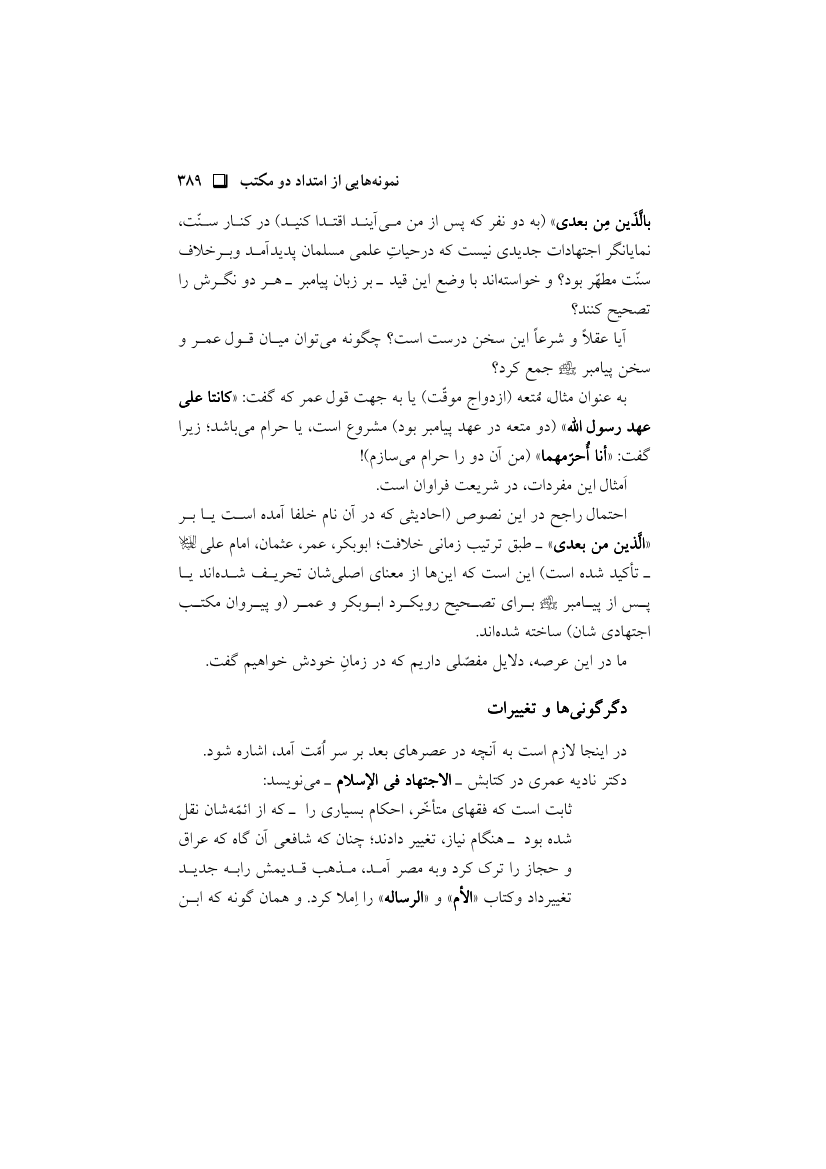 نمونه‌هایی از امتداد دو مکتب ❑ ۳۸۹
بالَّذَین مِن بعدی» (به دو نفر که پس از من مـی‌آینـد اقتـدا کنیـد) در کنـار سـنّت،
نمایانگر اجتهادات جدیدی نیست که درحیاتِ علمی مسلمان پدیدآمـد وبـرخلاف
سنّت مطهّر بود؟ و خواسته‌اند با وضع این قید ـ بر زبان پیامبر ـ هـر دو نگـرش را
تصحیح کنند؟
آیا عقلاً و شرعاً این سخن درست است؟ چگونه می‌توان میـان قـول عمـر و
سخن پیامبر ﷺ جمع کرد؟
به عنوان مثال، مُتعه (ازدواج موقّت) یا به جهت قول عمر که گفت: «کانتا علی
عهد رسول الله» (دو متعه در عهد پیامبر بود) مشروع است، یا حرام می‌باشد؛ زیرا
گفت: «أنا أُحرّمهما» (من آن دو را حرام می‌سازم)!
اَمثال این مفردات، در شریعت فراوان است.
احتمال راجح در این نصوص (احادیثی که در آن نام خلفا آمده اسـت یـا بـر
«الَّذین من بعدی» ـ طبق ترتیب زمانی خلافت؛ ابوبکر، عمر، عثمان، امام علی علیه‌السلام
ـ تأکید شده است) این است که این‌ها از معنای اصلی‌شان تحریـف شـده‌اند یـا
پـس از پیـامبر ﷺ بـرای تصـحیح رویکـرد ابـوبکر و عمـر (و پیـروان مکتـب
اجتهادی شان) ساخته شده‌اند.
ما در این عرصه، دلایل مفصّلی داریم که در زمانِ خودش خواهیم گفت.
دگرگونی‌ها و تغییرات
در اینجا لازم است به آنچه در عصرهای بعد بر سر اُمّت آمد، اشاره شود.
دکتر نادیه عمری در کتابش ـ الاجتهاد فی الإسلام ـ می‌نویسد:
ثابت است که فقهای متأخّر، احکام بسیاری را ـ که از ائمّه‌شان نقل
شده بود ـ هنگام نیاز، تغییر دادند؛ چنان که شافعی آن گاه که عراق
و حجاز را ترک کرد وبه مصر آمـد، مـذهب قـدیمش رابـه جدیـد
تغییرداد وکتاب «الأم» و «الرساله» را اِملا کرد. و همان گونه که ابـن